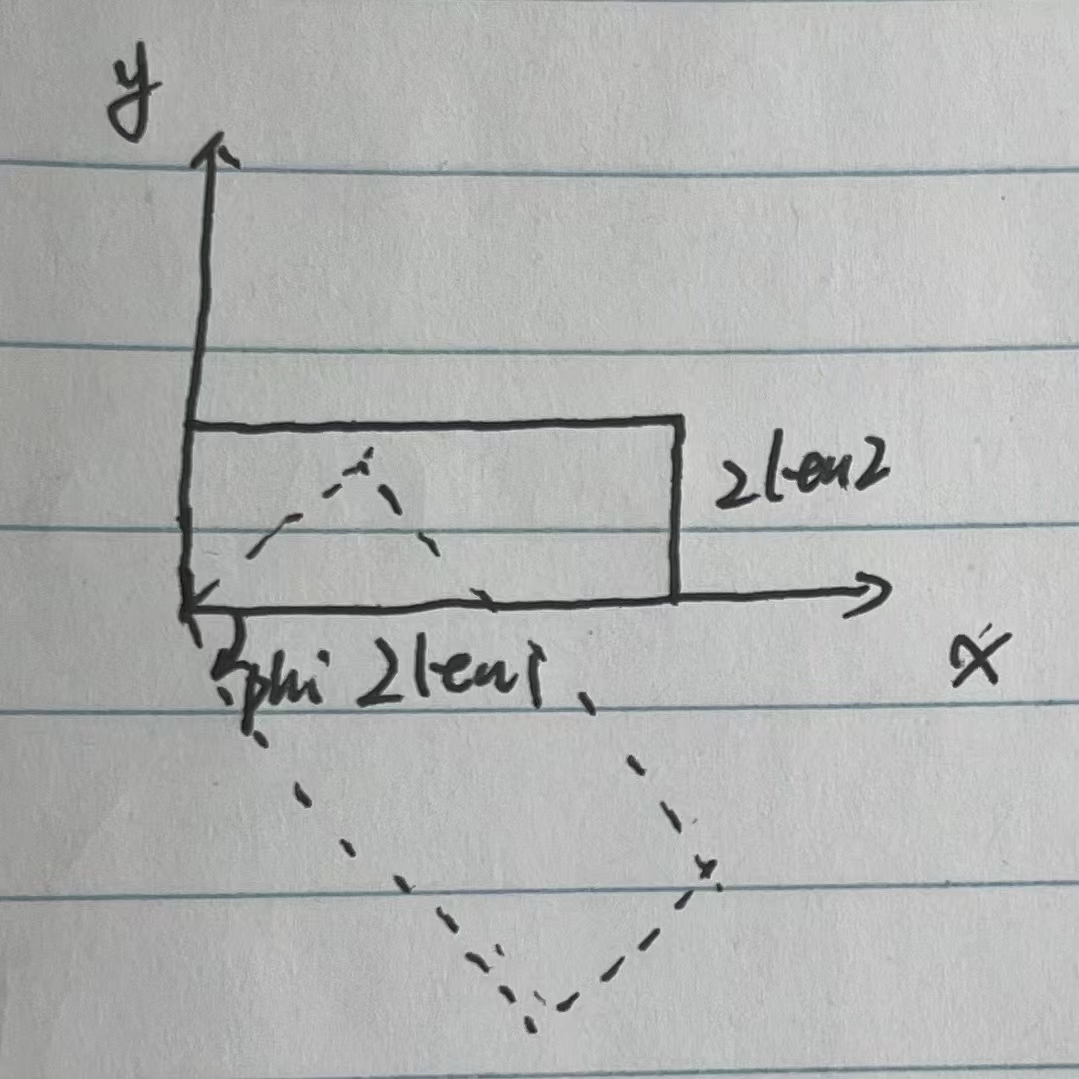 y
2len2
x
phi 2len1